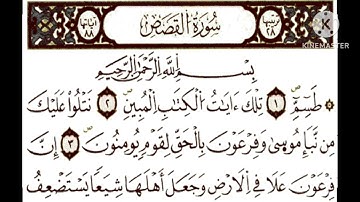 ترتيبها ٢٨ سورة القصص آياتها ٨٨
KINEMASTER
بِسْمِ اللَّهِ الرَّحْمَنِ الرَّحِيمِ
طسٓمٓ ١ تِلْكَ ءَايَٰتُ الْكِتَٰبِ الْمُبِينِ ٢ نَتْلُوا عَلَيْكَ
مِن نَّبَإِ مُوسَىٰ وَفِرْعَوْنَ بِالْحَقِّ لِقَوْمٍ يُؤْمِنُونَ ٣ إِنَّ
فِرْعَوْنَ عَلَا فِي الْأَرْضِ وَجَعَلَ أَهْلَهَا شِيَعًا يَسْتَضْعِفُ